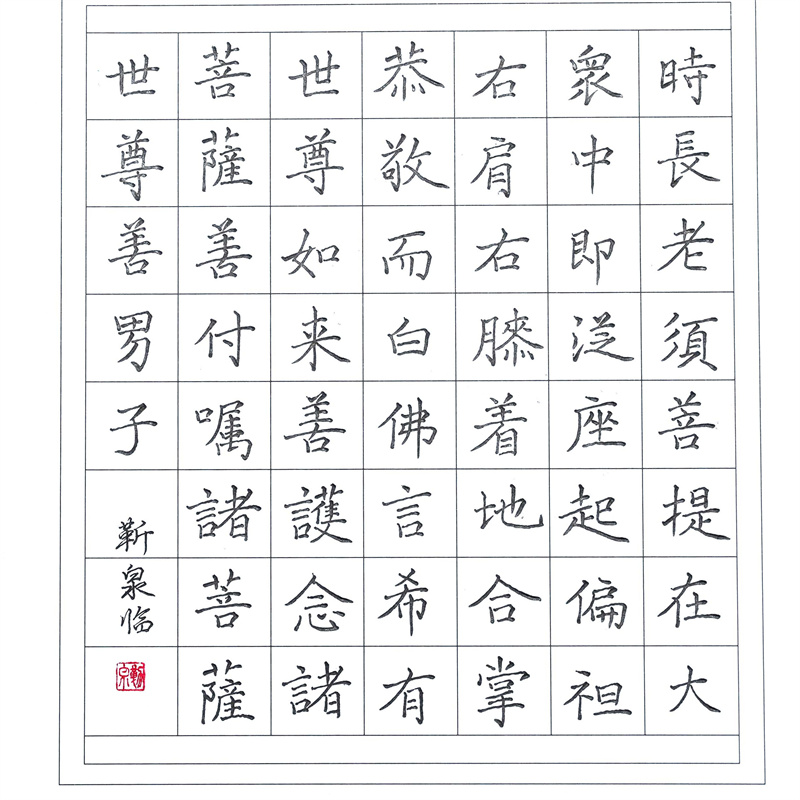 時長老須菩提在大
衆中即従座起偏袒
右肩右膝着地合掌
恭敬而白佛言希有
世尊如来善護念諸
菩薩善付嘱諸菩薩
世尊善男子
靳泉临